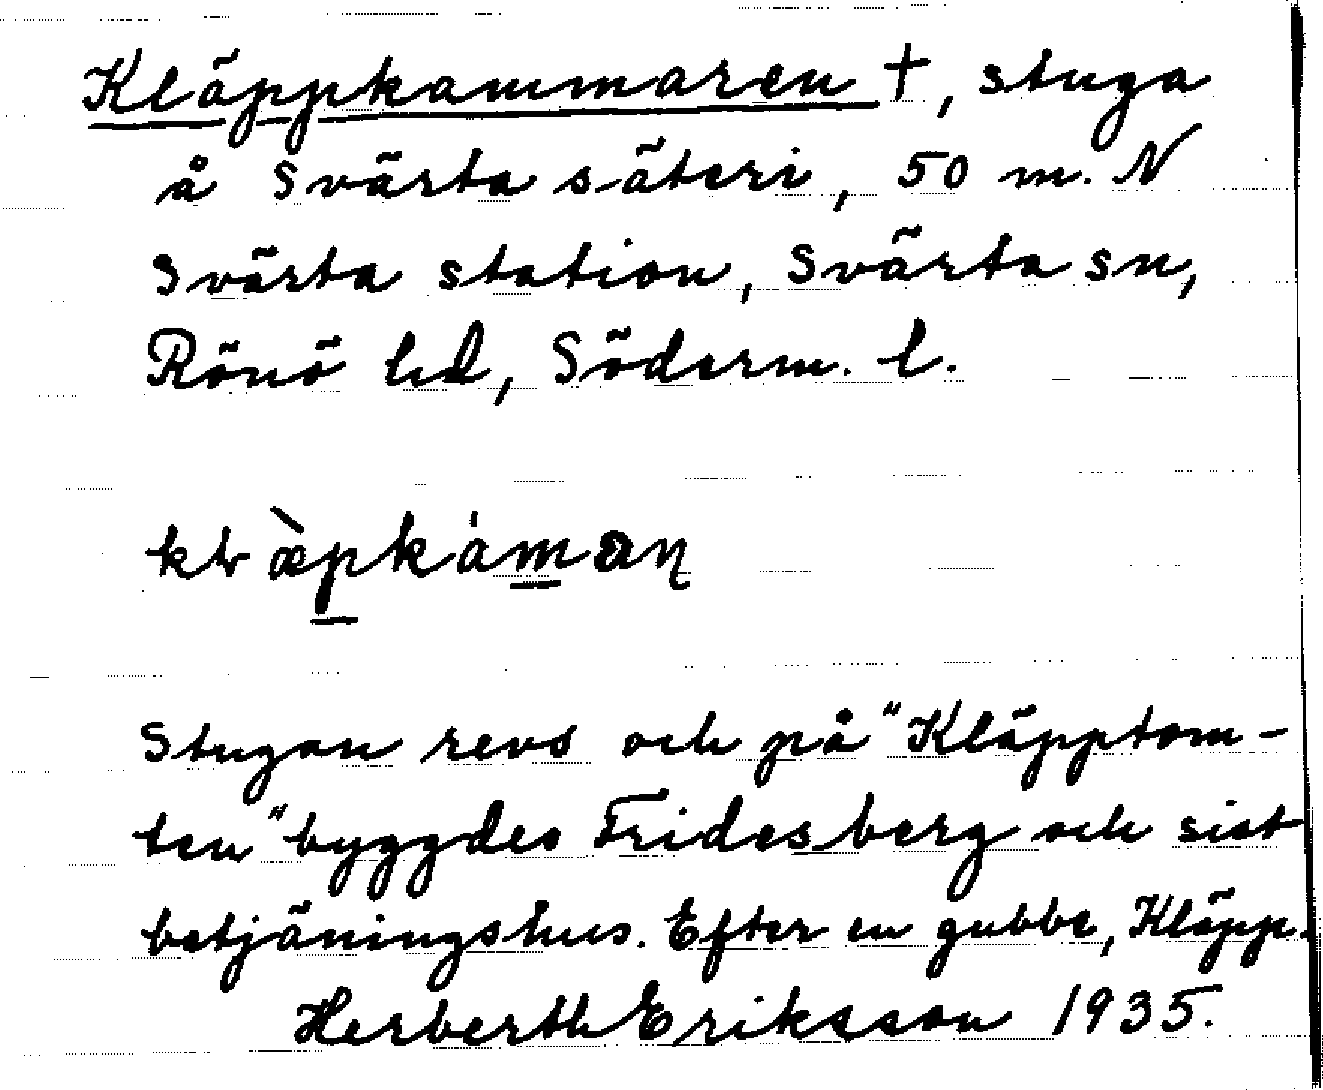 Kläppkammaren †, stuga
å Svärta säteri, 50 m. N
Svärta station, Svärta sn,
Rönö hd, Söderm. l.
klæ̀pkámaɳ
Stugan revs och på "Kläpptom-
ten" byggdes Fridesberg och sist
betjäningshus. Efter en gubbe, Kläpp.
Herberth Eriksson 1935.